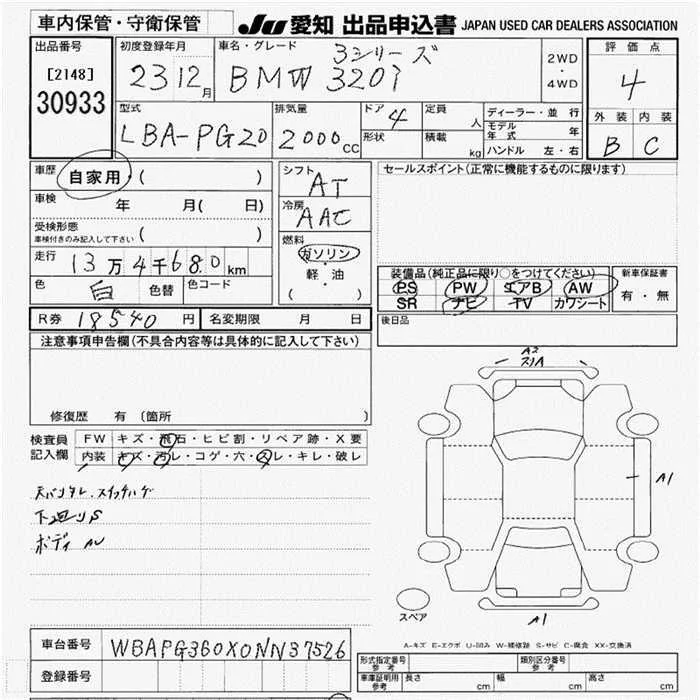 車内保管・守衛保管
JU 愛知 出品申込書 JAPAN USED CAR DEALERS ASSOCIATION
出品番号
[2148]
30933
初度登録年月
23 12月
車名・グレード
3シリーズ
BMW 320i
2WD
・
4WD
評価点
4
外装 内装
B C
型式
LBA-PG20
排気量
2000cc
ドア 4
形状
定員 人
積載 kg
ディーラー・並行
モデル年式 年
ハンドル 左・右
車歴 自家用 ( )
車検 年 月( 日)
受検形態
車検付きのみ記入して下さい ( )
走行 13万4千680km
色 白 色替 色コード
シフト
AT
冷房
AAC
燃料
ガソリン
軽・油
( )
セールスポイント(正常に機能するものに限ります)
装備品(純正品に限り○をつけてください)
PS PW エアB AW
SR ナビ TV カワシート
新車保証書
有・無
後日品
R券 18540円 名変期限 月 日
注意事項申告欄(不具合内容等は具体的に記入して下さい)
修復歴 有 〔箇所 〕
検査員
記入欄
FW キズ・飛石・ヒビ割・リペア跡・X要
内装 キズ・汚レ・コゲ・穴・スレ・キレ・破レ
下廻りS
A2
スリA
A1
A1
スペア
A-キズ E-エクボ U-凹み W-補修跡 S-サビ C-腐食 XX-交換済
車台番号 WBAPG360X0NN37526
登録番号
形式指定番号
参考
類別区分番号
参考
車庫証明用
参考
長さ cm 幅 cm 高さ cm